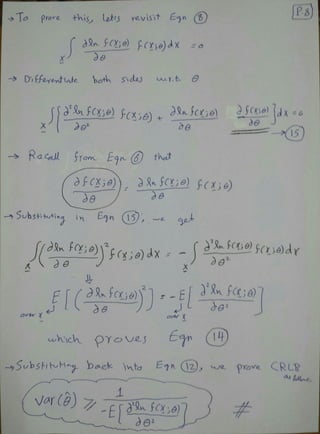 P.8
→ To prove this, lets revisit Eqn ⑧
∫_x ∂ln f(x;θ)/∂θ f(x;θ) dx = 0
→ Differentiate both sides w.r.t. θ
∫_x { ∂²ln f(x;θ)/∂θ² f(x;θ) + ∂ln f(x;θ)/∂θ ∂f(x;θ)/∂θ } dx = 0
→ ⑮
→ Recall from Eqn ⑥ that
∂f(x;θ)/∂θ = ∂ln f(x;θ)/∂θ f(x;θ)
→ Substituting in Eqn ⑮, we get
∫_x (∂ln f(x;θ)/∂θ)² f(x;θ) dx = - ∫_x ∂²ln f(x;θ)/∂θ² f(x;θ) dx
⇓
E[(∂ln f(x;θ)/∂θ)²] = -E[∂²ln f(x;θ)/∂θ²]
over x over x
which proves Eqn ⑭
→ Substituting back into Eqn ⑫, we prove CRLB
as follows.
var(θ̂) ≥ 1/(-E[∂²ln f(x;θ)/∂θ²]) #